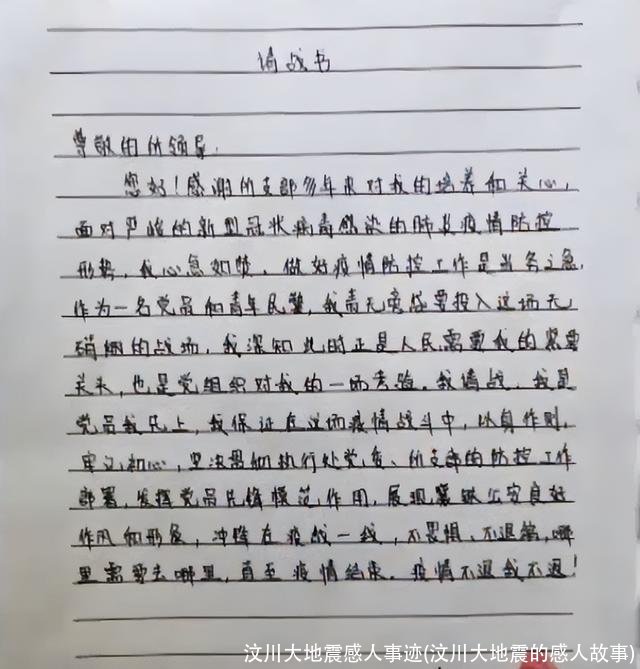 请战书
尊敬的所领导:
您好!感谢所支部多年来对我的培养和关心,
面对严峻的新型冠状病毒感染的肺炎疫情防控
形势,我心急如焚,做好疫情防控工作是当务之急,
作为一名党员和青年民警,我责无旁贷要投入这场无
硝烟的战场,我深知此时正是人民需要我的紧要
关头,也是党组织对我的一场考验。我请战,我是
党员我先上,我保证在这场疫情战斗中,以身作则,
牢记初心,坚决贯彻执行处党委、所支部的防控工作
部署,发挥党员先锋模范作用,展现襄铁公安良好
作风和形象,冲锋在疫战一线,不畏惧、不退缩,哪
里需要去哪里,直至疫情结束。疫情不退我不退!
汶川大地震感人事迹(汶川大地震的感人故事)